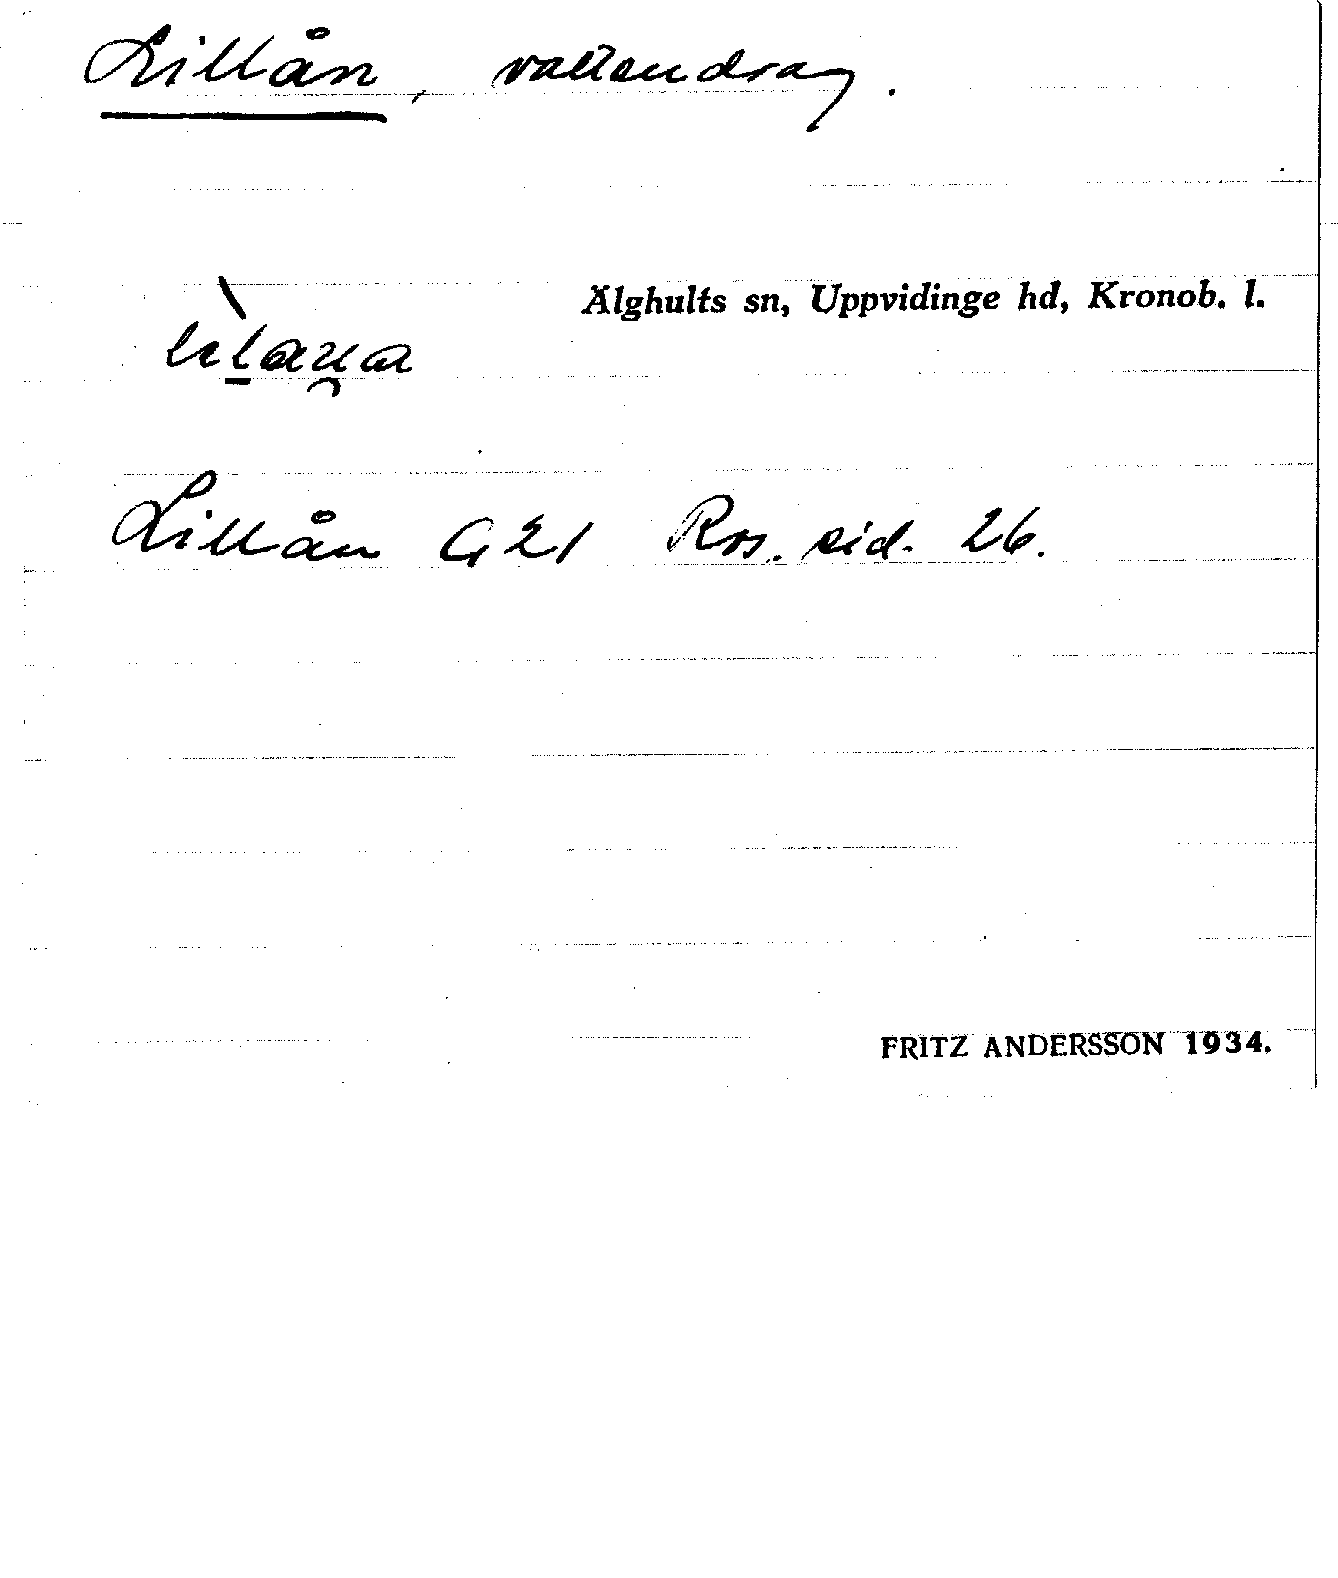 Lillån, vattendrag.
Älghults sn, Uppvidinge hd, Kronob. l.
Lillån G21 Ros. sid. 26.
FRITZ ANDERSSON 1934.